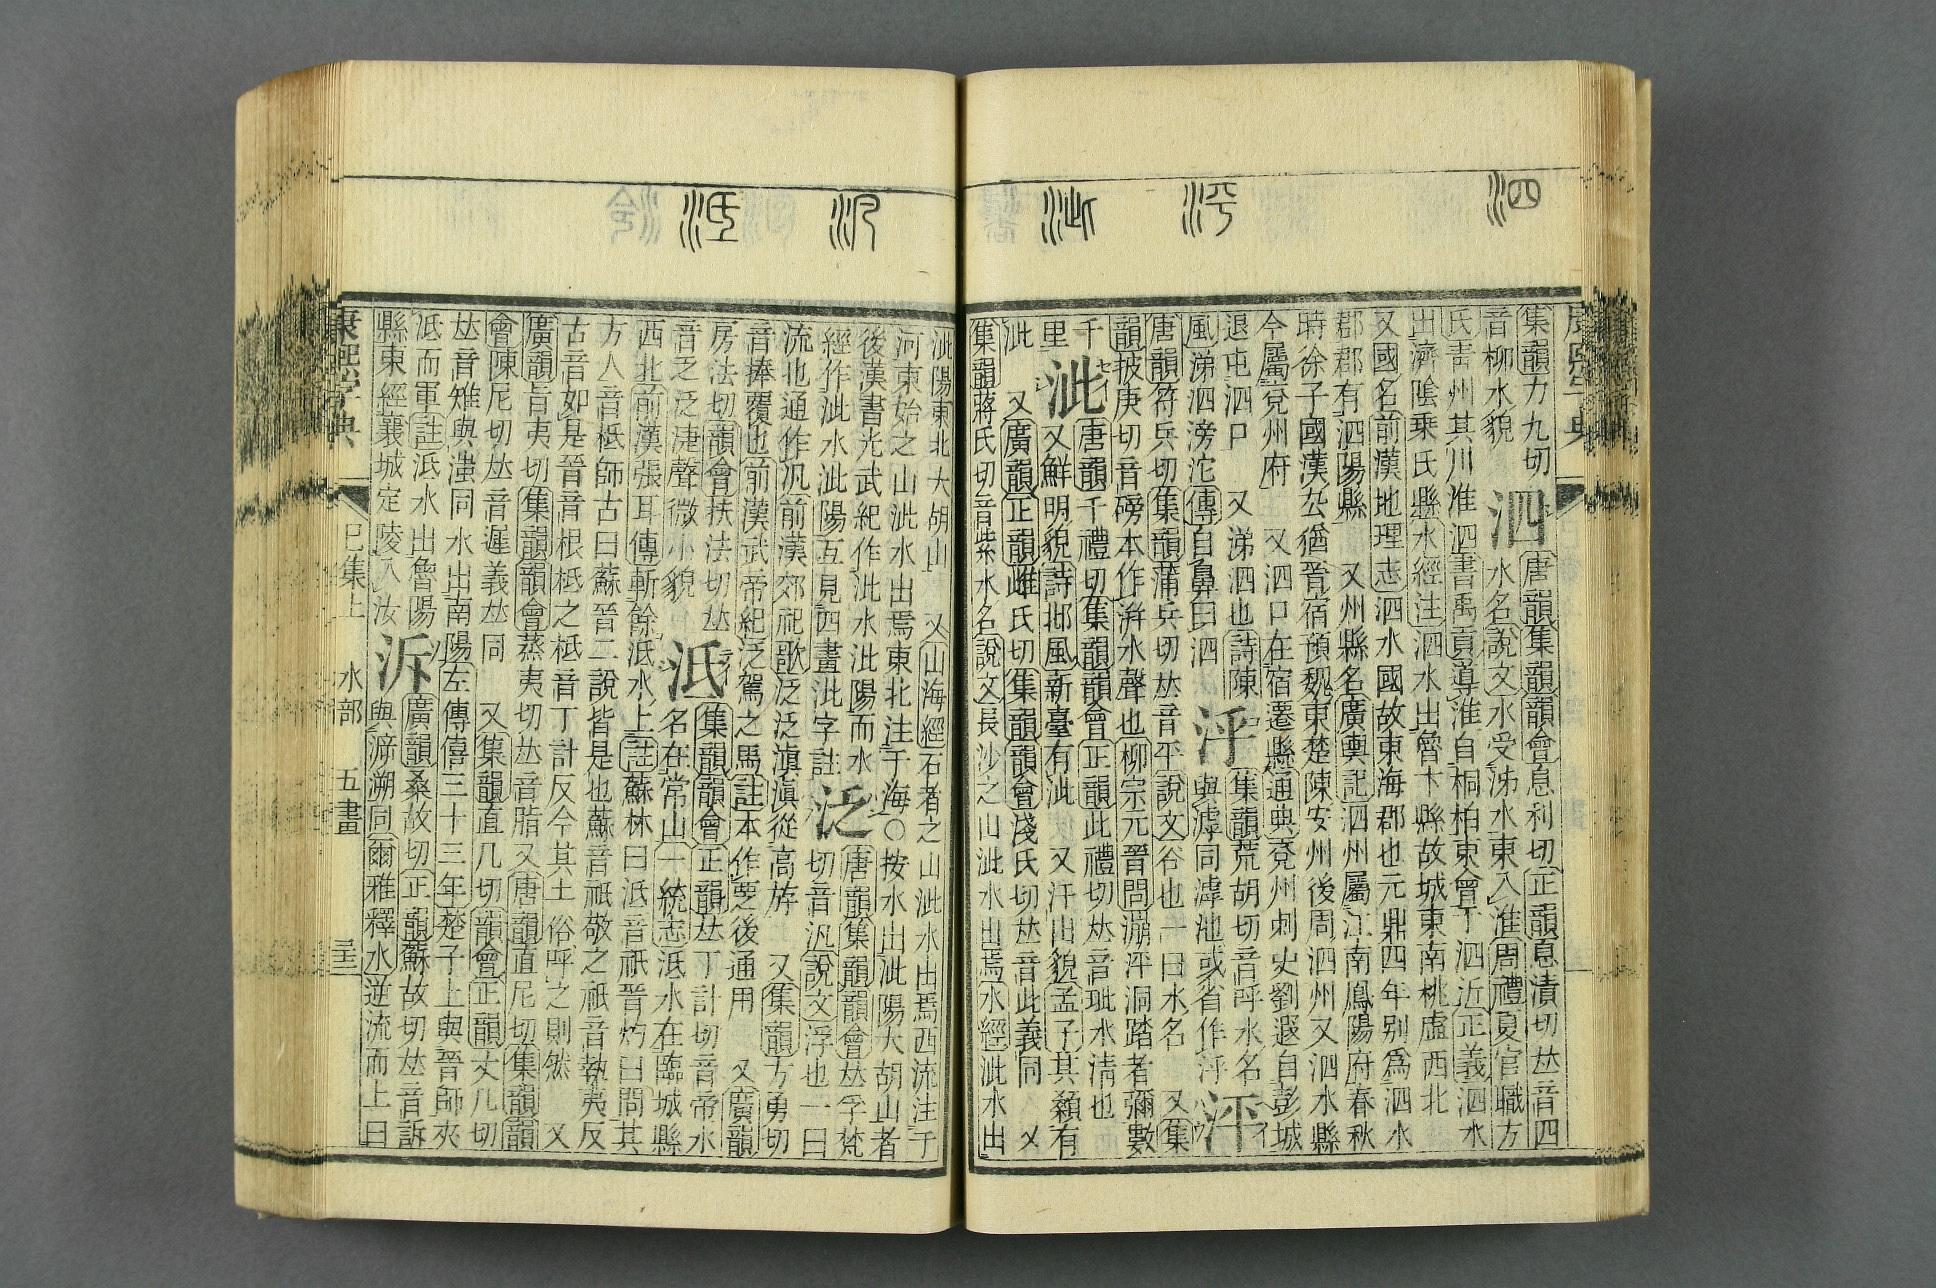 泗
泙
泚
汎
泜
康熙字典
集韻力九切
音柳水貌
泗
唐韻集韻韻會息利切正韻息漬切𠀤音四
水名說文水受泲水東入淮周禮夏官職方
氏靑州其川淮泗書禹貢導淮自桐柏東會于泗沂正義泗水
出濟陰乗氏縣水經注泗水出魯卞縣故城東南桃虛西北
又國名前漢地理志泗水國故東海郡也元鼎四年别爲泗水
郡郡有泗陽縣 又州縣名廣輿記泗州屬江南鳳陽府春秋
時徐子國漢厹猶晉宿預魏東楚陳安州後周泗州又泗水縣
今屬兗州府 又泗口在宿遷縣通典兗州刺史劉遐自彭城
退屯泗口 又涕泗也詩陳
風涕泗滂沱傳自鼻曰泗
泘
集韻荒胡切音呼水名
與滹同滹池或省作泘
泙
唐韻符兵切集韻蒲兵切𠀤音平說文谷也一曰水名 又集
韻披庚切音磅本作洴水聲也柳宗元晉問漰泙洞踏者彌數
千
里
泚
唐韻千禮切集韻韻會正韻此禮切𠀤音玼水淸也
又鮮明貌詩邶風新臺有泚 又汗出貌孟子其顙有
泚 又廣韻正韻雌氏切集韻韻會淺氏切𠀤音此義同 又
集韻蔣氏切音紫水名說文長沙之山泚水出焉水經泚水出
泚陽東北大胡山 又山海經石者之山泚水出焉西流注于
河東始之山泚水出焉東北注于海○按水出泚陽大胡山者
後漢書光武紀作沘水沘陽而水
經作泚水泚陽互見四畫沘字註
泛
唐韻集韻韻會𠀤孚梵
切音汎說文浮也一曰
流也通作汎前漢郊祀歌泛泛滇滇從高斿 又集韻方勇切
音捧覆也前漢武帝紀泛駕之馬註本作覂後通用 又廣韻
房法切韻會扶法切𠀤
音乏泛淎聲微小貌
泜
集韻韻會正韻𠀤丁計切音帝水
名在常山一統志泜水在臨城縣
西北前漢張耳傳斬餘泜水上註蘇林曰泜音祇晉灼曰問其
方人音柢師古曰蘇晉二說皆是也蘇音祇敬之祇音執夷反
古音如是晉音根柢之柢音丁計反今其土俗呼之則然 又
廣韻旨夷切集韻韻會蒸夷切𠀤音脂又唐韻直尼切集韻韻
會陳尼切𠀤音遲義𠀤同 又集韻直几切韻會正韻丈几切
𠀤音雉與滍同水出南陽左傳僖三十三年楚子上與晉師夾
泜而軍註泜水出魯陽
縣東經襄城定陵入汝
泝
廣韻桑故切正韻蘇故切𠀤音訴
與㴑溯同爾雅釋水逆流而上曰
康熙字典 巳集上 水部 五畫